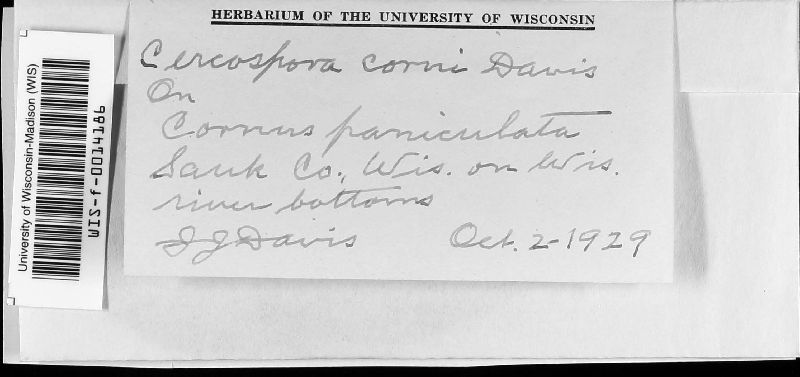 HERBARIUM OF THE UNIVERSITY OF WISCONSIN
Cercospora corni Davis
On
Cornus paniculata
Sauk Co., Wis. on Wis.
river bottoms
J J Davis Oct. 2-1929
University of Wisconsin-Madison (WIS)
WIS-f-0014186